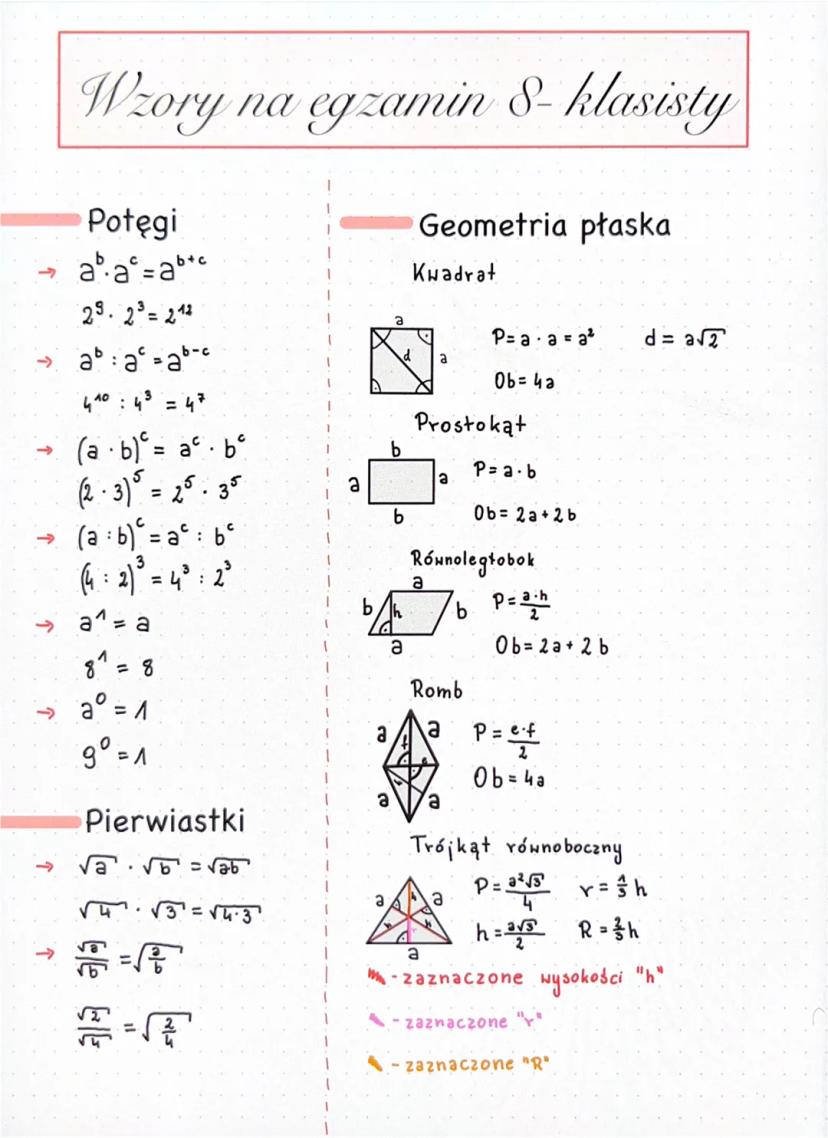 Wzory na egzamin 8-klasisty
Potęgi
→ aᵇ · aᶜ = aᵇ⁺ᶜ
2⁹ · 2³ = 2¹²
→ aᵇ : aᶜ = aᵇ⁻ᶜ
4¹⁰ : 4³ = 4⁷
→ (a · b)ᶜ = aᶜ · bᶜ
(2 · 3)⁵ = 2⁵ · 3⁵
→ (a : b)ᶜ = aᶜ : bᶜ
(4 : 2)³ = 4³ : 2³
→ a¹ = a
8¹ = 8
→ a⁰ = 1
9⁰ = 1
Pierwiastki
→ √a · √b = √ab
√4 · √3 = √4·3
→ √a/√b = √(a/b)
√2/√4 = √(2/4)
Geometria płaska
Kwadrat
a
d
a
P = a · a = a² d = a√2
Ob = 4a
Prostokąt
b
a
a
b
P = a · b
Ob = 2a + 2b
Równoległobok
a
b h b
a
P = a·h/2
Ob = 2a + 2b
Romb
a a
f
e
a a
P = e·f/2
Ob = 4a
Trójkąt równoboczny
a a
h
h h
r
a
P = a²√3/4 r = 1/3 h
h = a√3/2 R = 2/3 h
- zaznaczone wysokości "h"
- zaznaczone "r"
- zaznaczone "R"